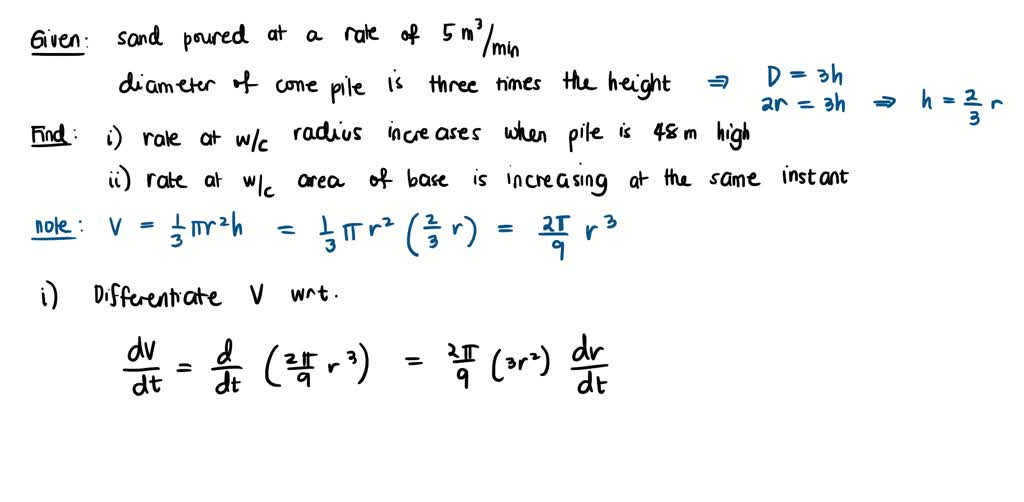 Given: sand poured at a rate of 5 m³/min
diameter of cone pile is three times the height ⇒ D = 3h
2r = 3h ⇒ h = 2/3 r
Find: i) rate at w/c radius increases when pile is 48 m high
ii) rate at w/c area of base is increasing at the same instant
note: V = 1/3 πr²h = 1/3 π r² (2/3 r) = 2π/9 r³
i) Differentiate V wrt.
dV/dt = d/dt (2π/9 r³) = 2π/9 (3r²) dr/dt